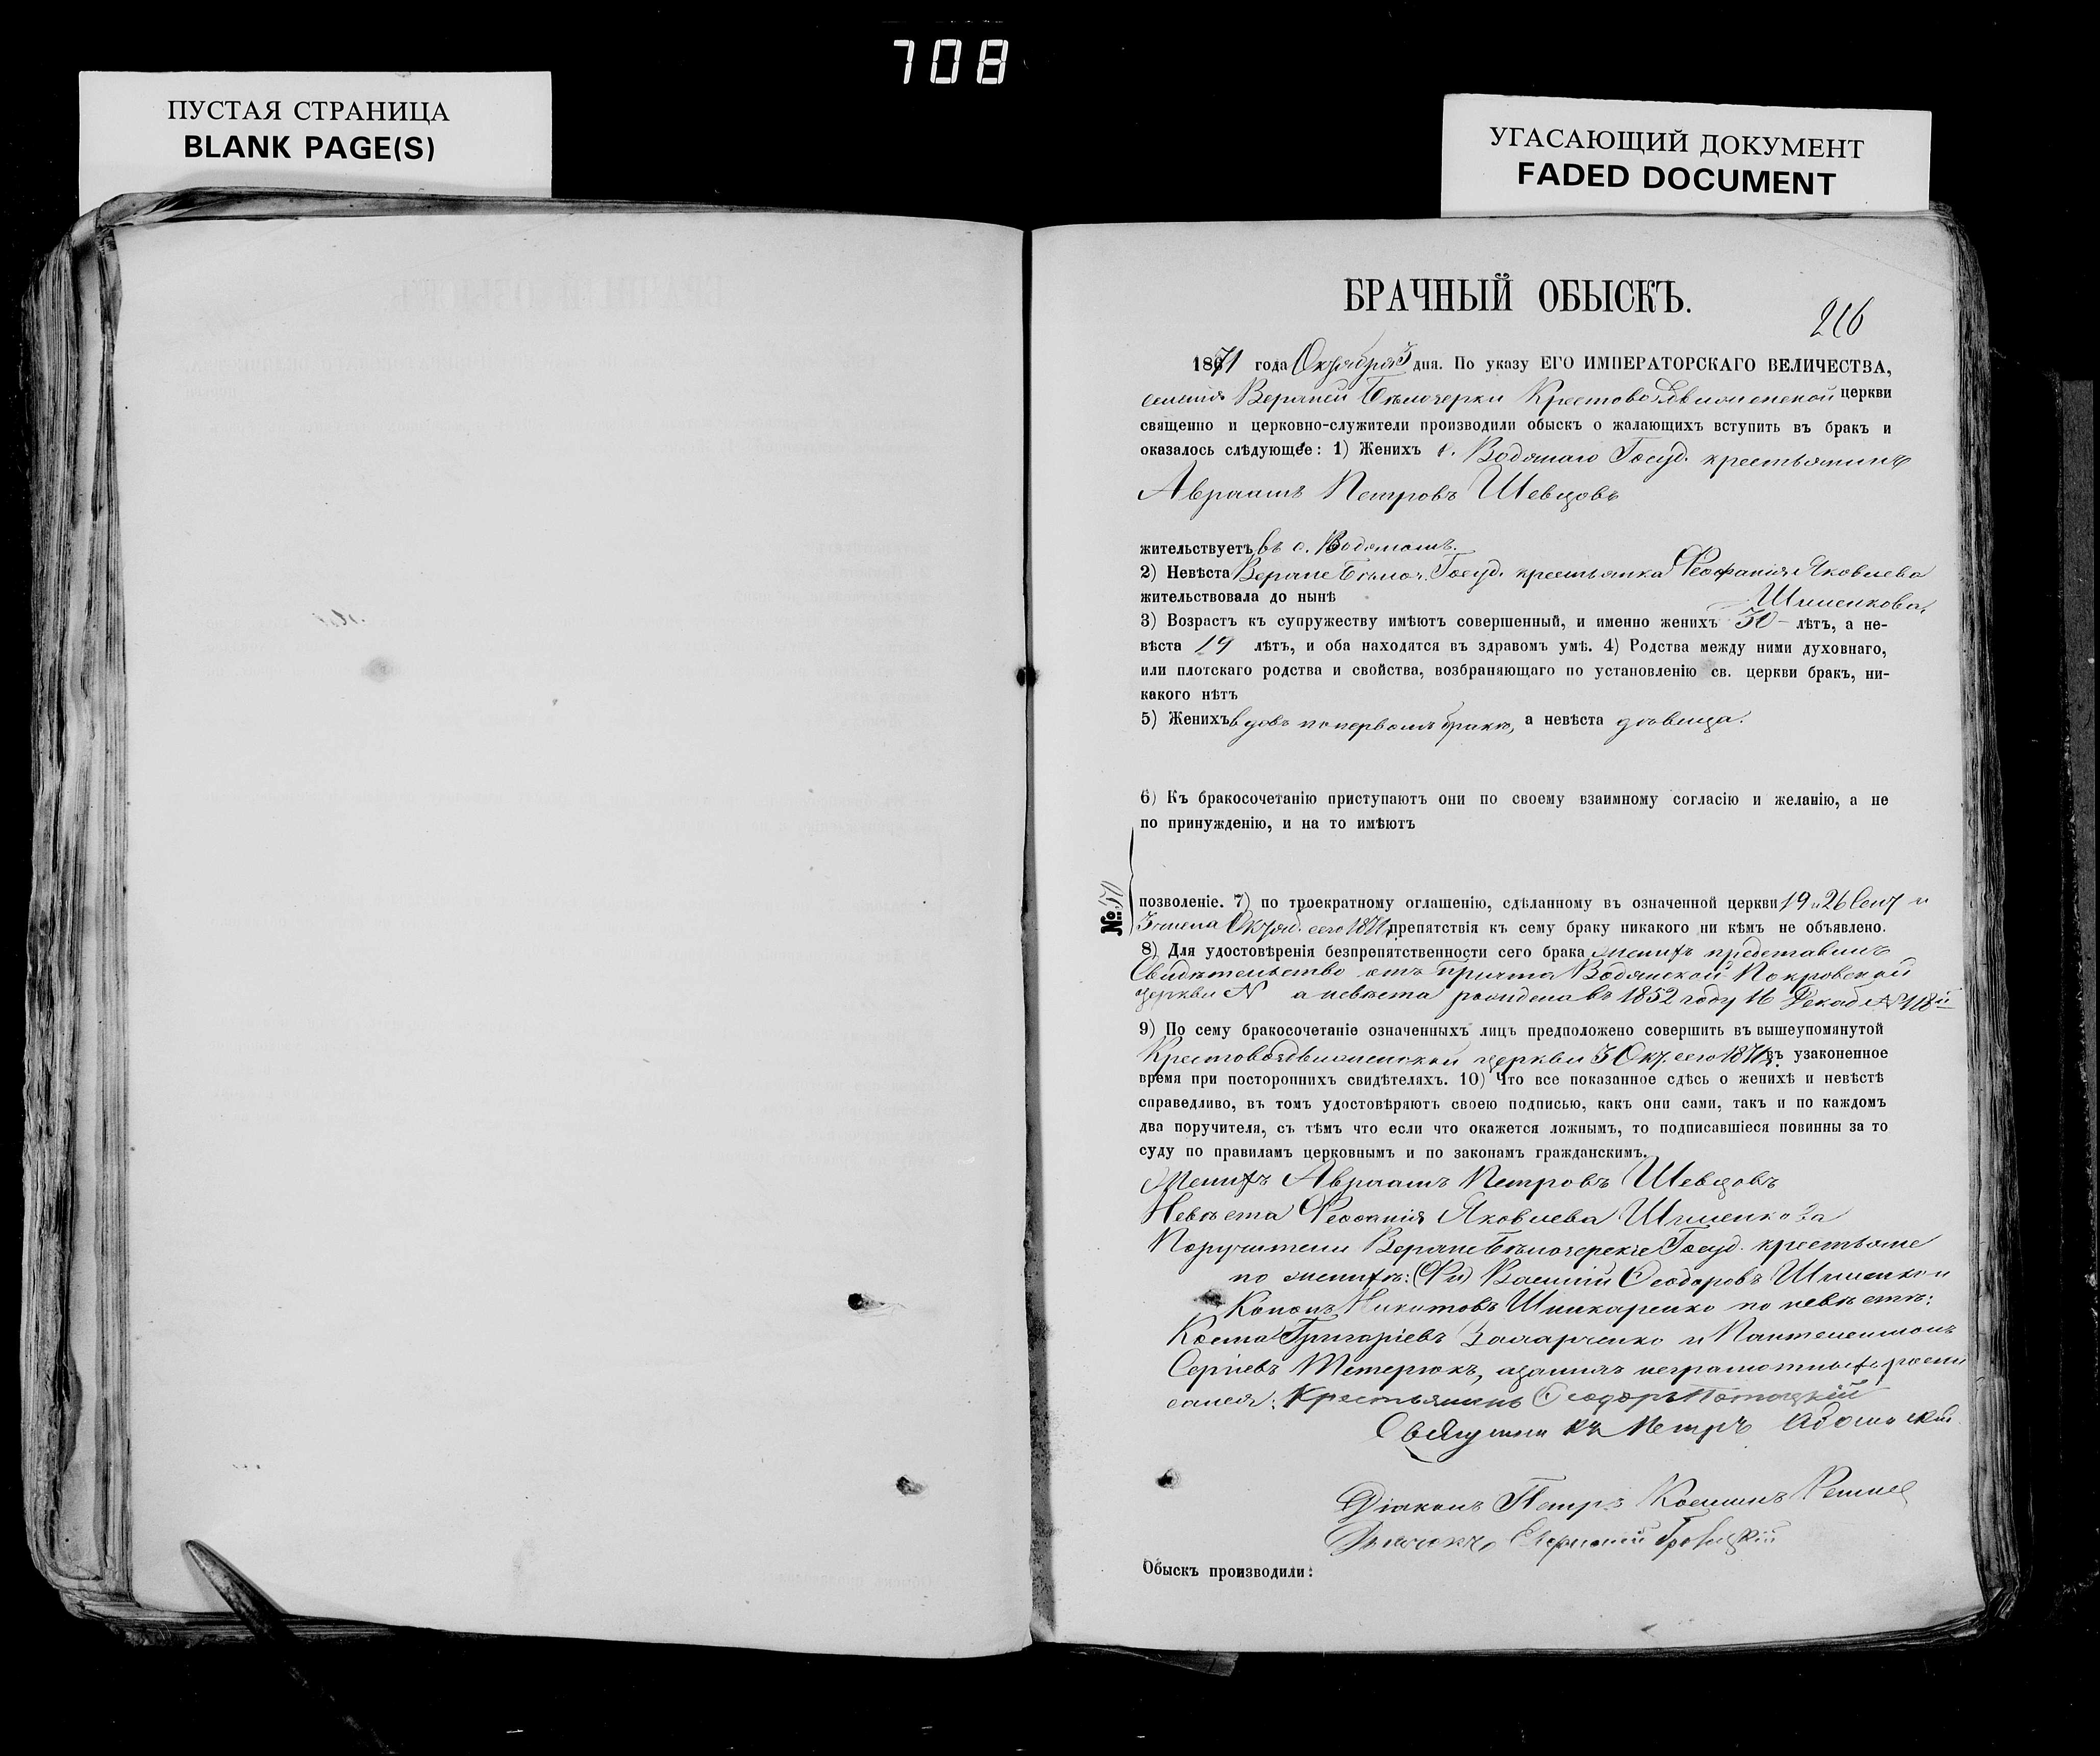 708
ПУСТАЯ СТРАНИЦА
BLANK PAGE(S)
УГАСАЮЩИЙ ДОКУМЕНТ
FADED DOCUMENT
БРАЧНЫЙ ОБЫСКЪ.
216
1871 года Октября 3 дня. По указу ЕГО ИМПЕРАТОРСКАГО ВЕЛИЧЕСТВА,
Крестовоздвиженской церкви
священно и церковно-служители производили обыскъ о жалающихъ вступить въ бракъ и
оказалось слѣдующее: 1) Женихъ с. Водянаго Госуд. крестьянинъ
Авраамъ Петровъ Шевцовъ
жительствуетъ въ с. Водяномъ.
2) Невѣста Верхне Бѣлоз. Госуд. крестьянка Феофанія Яковлева
жительствовала до нынѣ
3) Возрастъ къ супружеству имѣютъ совершенный, и именно женихъ 30 лѣтъ, а не-
вѣста 19 лѣтъ, и оба находятся въ здравомъ умѣ. 4) Родства между ними духовнаго,
или плотскаго родства и свойства, возбраняющаго по установленію св. церкви бракъ, ни-
какого нѣтъ
5) Женихъ вдовъ по первомъ бракѣ, а невѣста дѣвица.
6) Къ бракосочетанію приступаютъ они по своему взаимному согласію и желанію, а не
по принужденію, и на то имѣютъ
№ 50
позволеніе. 7) по троекратному оглашенію, сдѣланному въ означенной церкви 19 и 26 Сент и
3 числа Октяб. сего 1871 г. препятствія къ сему браку никакого ни кѣмъ не объявлено.
8) Для удостовѣренія безпрепятственности сего брака женихъ представилъ
Свидѣтельство отъ причта Водянской Покровской
церкви N а невѣста рождена въ 1852 году 16 Декаб. №118й
9) По сему бракосочетаніе означенныхъ лицъ предположено совершить въ вышеупомянутой
Крестовоздвиженской церкви 3 Окт. сего 1871 г. въ узаконенное
время при постороннихъ свидѣтеляхъ. 10) Что все показанное сдѣсь о женихѣ и невѣстѣ
справедливо, въ томъ удостовѣряютъ своею подписью, какъ они сами, такъ и по каждомъ
два поручителя, съ тѣмъ что если что окажется ложнымъ, то подписавшіеся повинны за то
суду по правиламъ церковнымъ и по законамъ гражданскимъ.
Женихъ Авраамъ Петровъ Шевцовъ
Невѣста Яковлева
Поручители Верхнебѣлозерскіе Госуд. крестьяне
по женихѣ: Василій Ѳеодоровъ
Кононъ Никитовъ Шинкаренко по невѣстѣ:
Косма Григоріевъ и Пантелеимонъ
Сергіевъ Тетерюкъ, а за нихъ неграмотныхъ роспи
сался: Крестьянинъ Ѳеодоръ Потоцкій
Священникъ Петръ
Діаконъ Петръ Косминъ
Обыскъ производили: